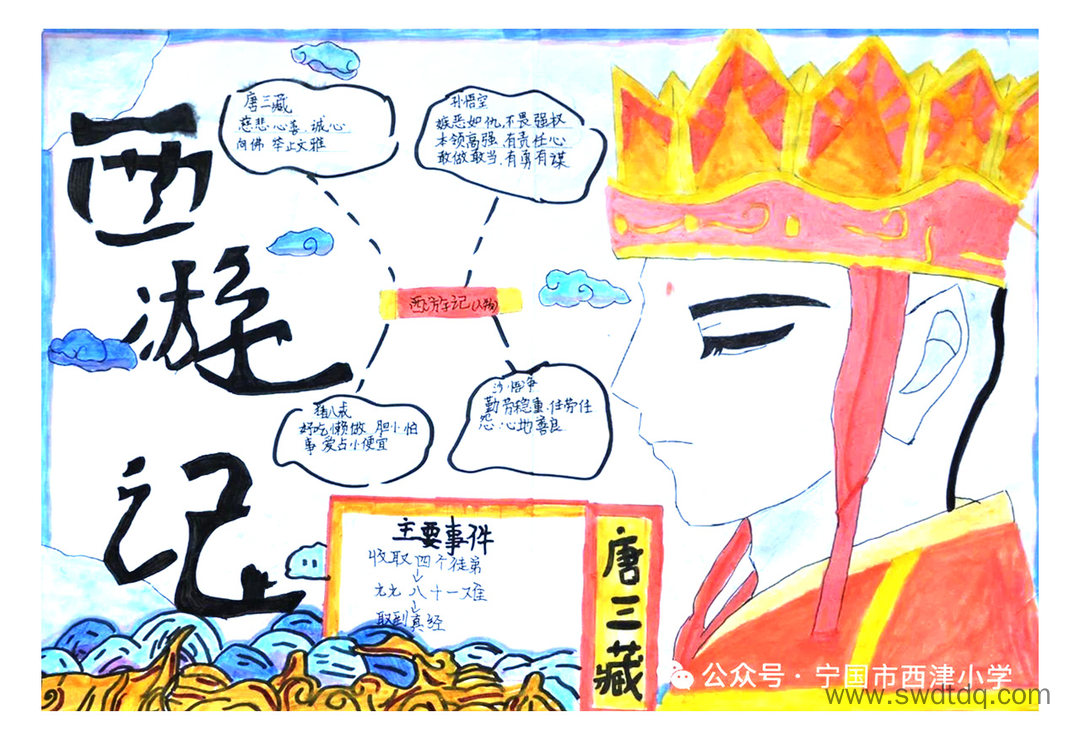 西
游
记
唐三藏
慈悲心善、诚心
向佛 举止文雅
孙悟空
嫉恶如仇,不畏强权
本领高强、有责任心
敢做敢当、有勇有谋
西游记(人物)
猪八戒
好吃懒做 胆小怕
事 爱占小便宜
沙悟净
勤劳稳重、任劳任
怨、心地善良
主要事件
收取四个徒弟
↓
九九八十一难
↓
取到真经
唐三藏
公众号·宁国市西津小学
www.swdtdq.com